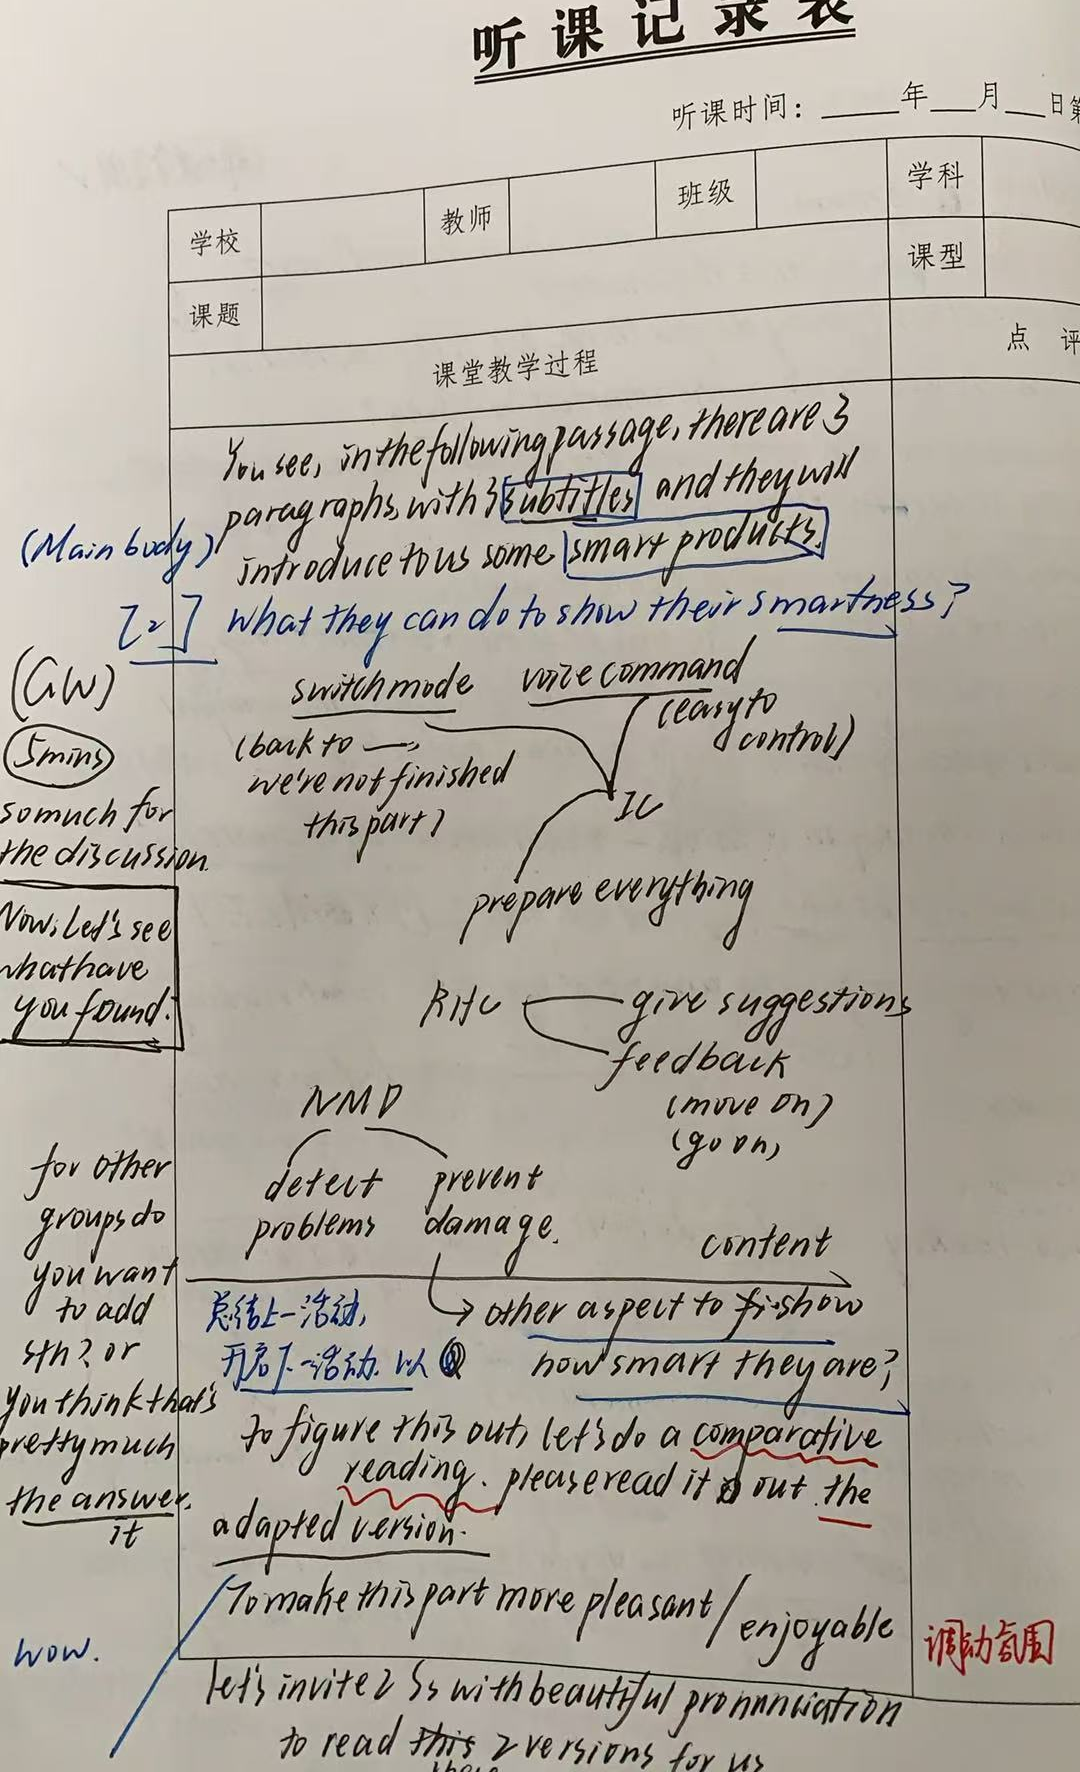 听课记录表
听课时间：____年___月___日第
学校 教师 班级 学科
课题 课型
课堂教学过程 点 评
You see, in the following passage, there are 3
paragraphs, with 3 subtitles and they will
(Main body) introduce to us some smart products.
[2] What they can do to show their smartness?
(GW) switch mode voice command
(easy to
control)
5mins (back to —,
we're not finished
this part)
IC
so much for
the discussion.
prepare everything
Now, Let's see
what have
you found.
RHC give suggestions
feedback
(move on)
(go on)
NMD
detect
problems
prevent
damage.
for other
groups do
you want
to add
sth? or
you think that's
pretty much
the answer.
it
content
总结上一活动,
开启下一活动. 以
other aspect to show
how smart they are?
To figure this out, let's do a comparative
reading. please read it out the
adapted version.
To make this part more pleasant / enjoyable
wow.
调动氛围
let's invite 2 Ss with beautiful pronunciation
to read this 2 versions for us